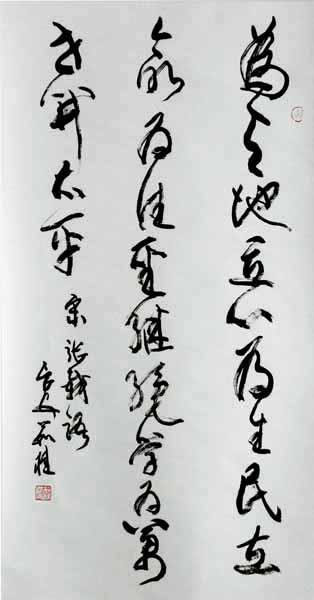 為天地立心為生民立
命為往聖繼絕學為萬
世開太平 宋張載語